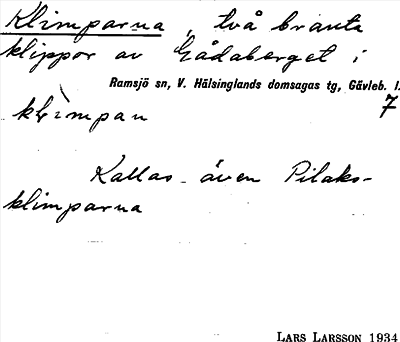 Klimparna, två branta
klippor av Gådaberget i
Ramsjö sn, V. Hälsinglands domsagas tg, Gävleb. l.
7
klimpan
Kallas även Pilaks-
klimparna
LARS LARSSON 1934